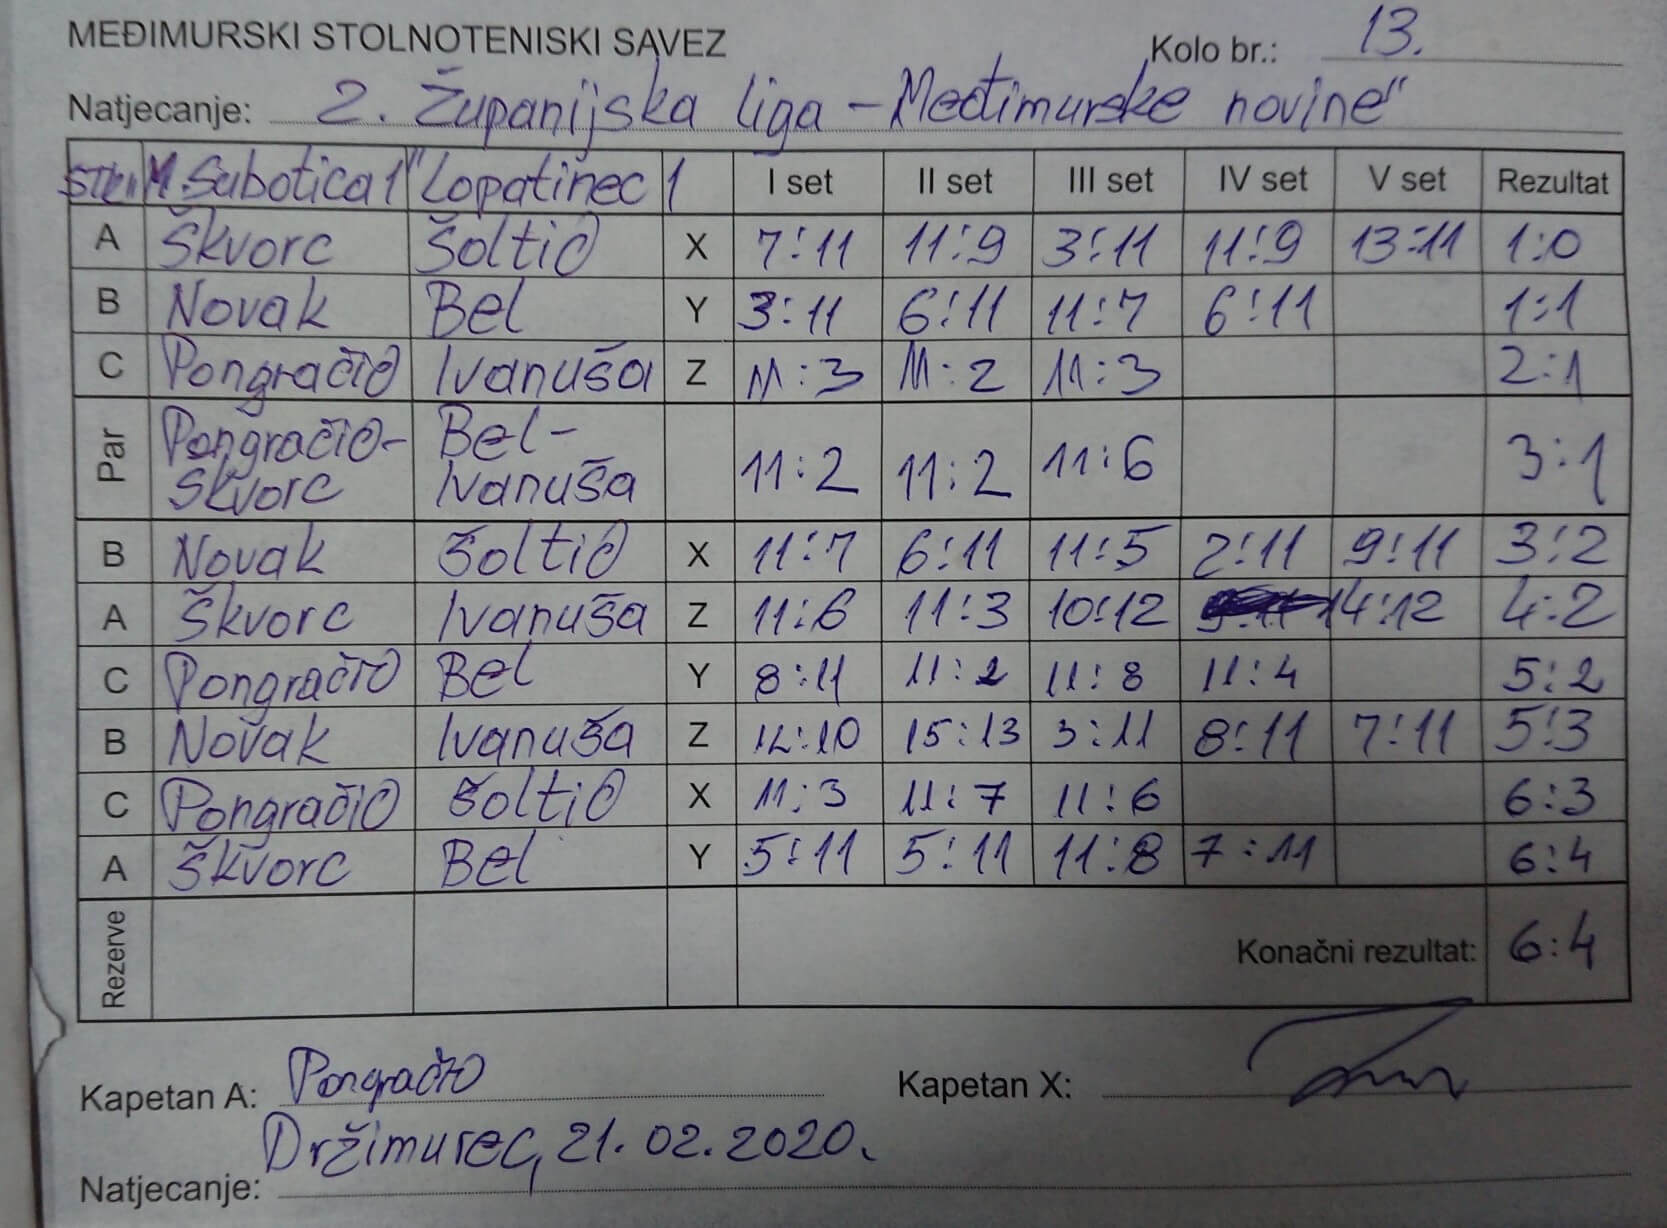 MEĐIMURSKI STOLNOTENISKI SAVEZ
Kolo br.: 13.
Natjecanje: 2. Županijska liga - Međimurske novine"
STK "M. Subotica 1" Lopatinec 1 I set II set III set IV set V set Rezultat
A Škvorc Šoltić X 7:11 11:9 3:11 11:9 13:11 1:0
B Novak Bel Y 3:11 6:11 11:7 6:11 1:1
C Pongračić Ivanuša Z 11:3 11:2 11:3 2:1
Par Pongračić- Bel- 11:2 11:2 11:6 3:1
Škvorc Ivanuša
B Novak Šoltić X 11:7 6:11 11:5 2:11 9:11 3:2
A Škvorc Ivanuša Z 11:6 11:3 10:12 14:12 4:2
C Pongračić Bel Y 8:11 11:2 11:8 11:4 5:2
B Novak Ivanuša Z 12:10 15:13 3:11 8:11 7:11 5:3
C Pongračić Šoltić X 11:3 11:7 11:6 6:3
A Škvorc Bel Y 5:11 5:11 11:8 7:11 6:4
Rezerve Konačni rezultat: 6:4
Kapetan A: Pongračić Kapetan X:
Držimurec, 21.02.2020.
Natjecanje: